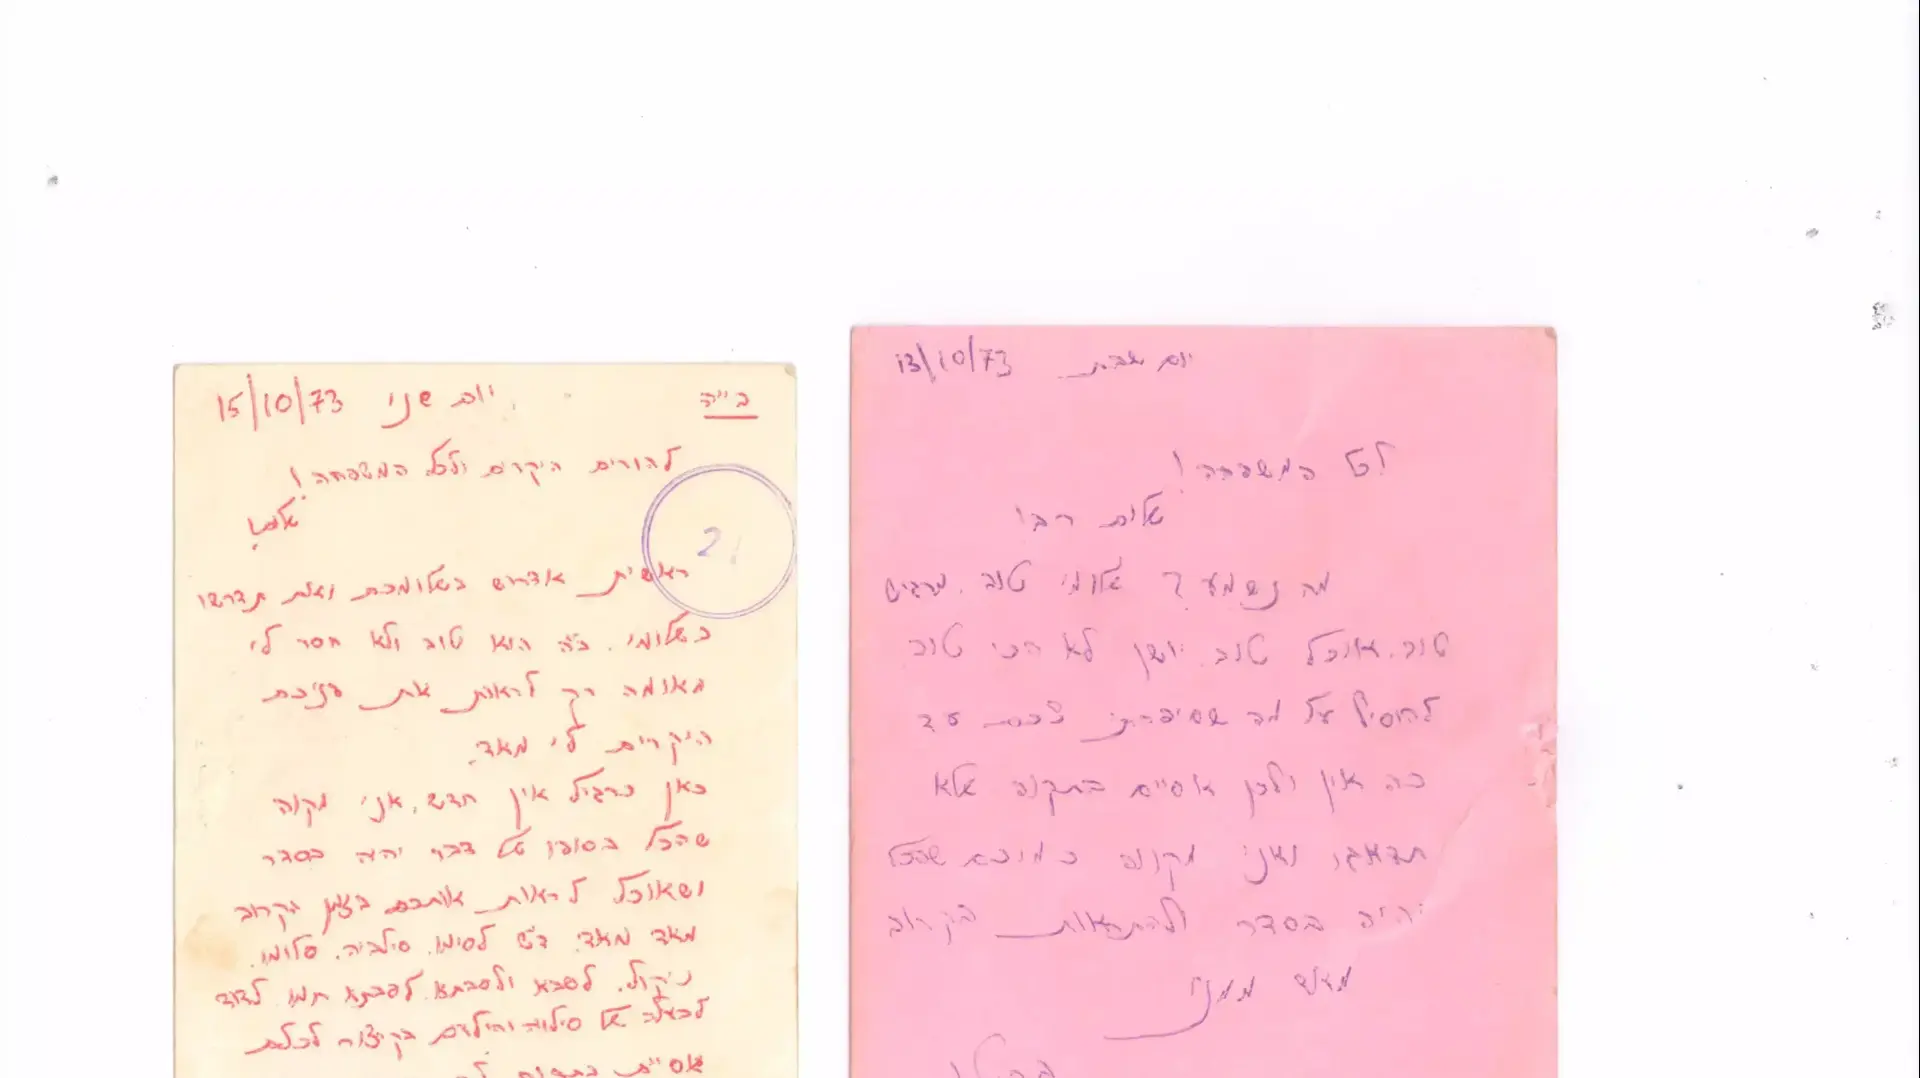 ב"ה יום שני 15/10/73
להורים היקרים ולכל המשפחה!
שלום!
ראשית אדרוש בשלומכם ואתם תדרשו
בשלומי. ב"ה הוא טוב ולא חסר לי
מאומה רק לראות את פניכם
היקרים לי מאד.
כאן כרגיל אין חדש, אני מקוה
שהכל בסופו של דבר יהיה בסדר
ושאוכל לראות אותכם בזמן הקרוב
מאד מאד. ד"ש לסימו, סילביה, סלומו,
ניקול, לסבא ולסבתא לסבתא תמו לדוד
לבעלה של סילויה והילדים בקיצור לכולם
אסיים בתקוה
יום שבת 13/10/73
לכל המשפחה!
שלום רב!
מה נשמע? שלומי טוב, מרגיש
טוב, אוכל טוב, יושן לא הכי טוב
להוסיף על מה שסיפרתי לכם עד
כה אין ולכן אסיים בתקוה שלא
תדאגו ואני מקוה כמוכם שהכל
יהיה בסדר ולהתראות בקרוב
ממני